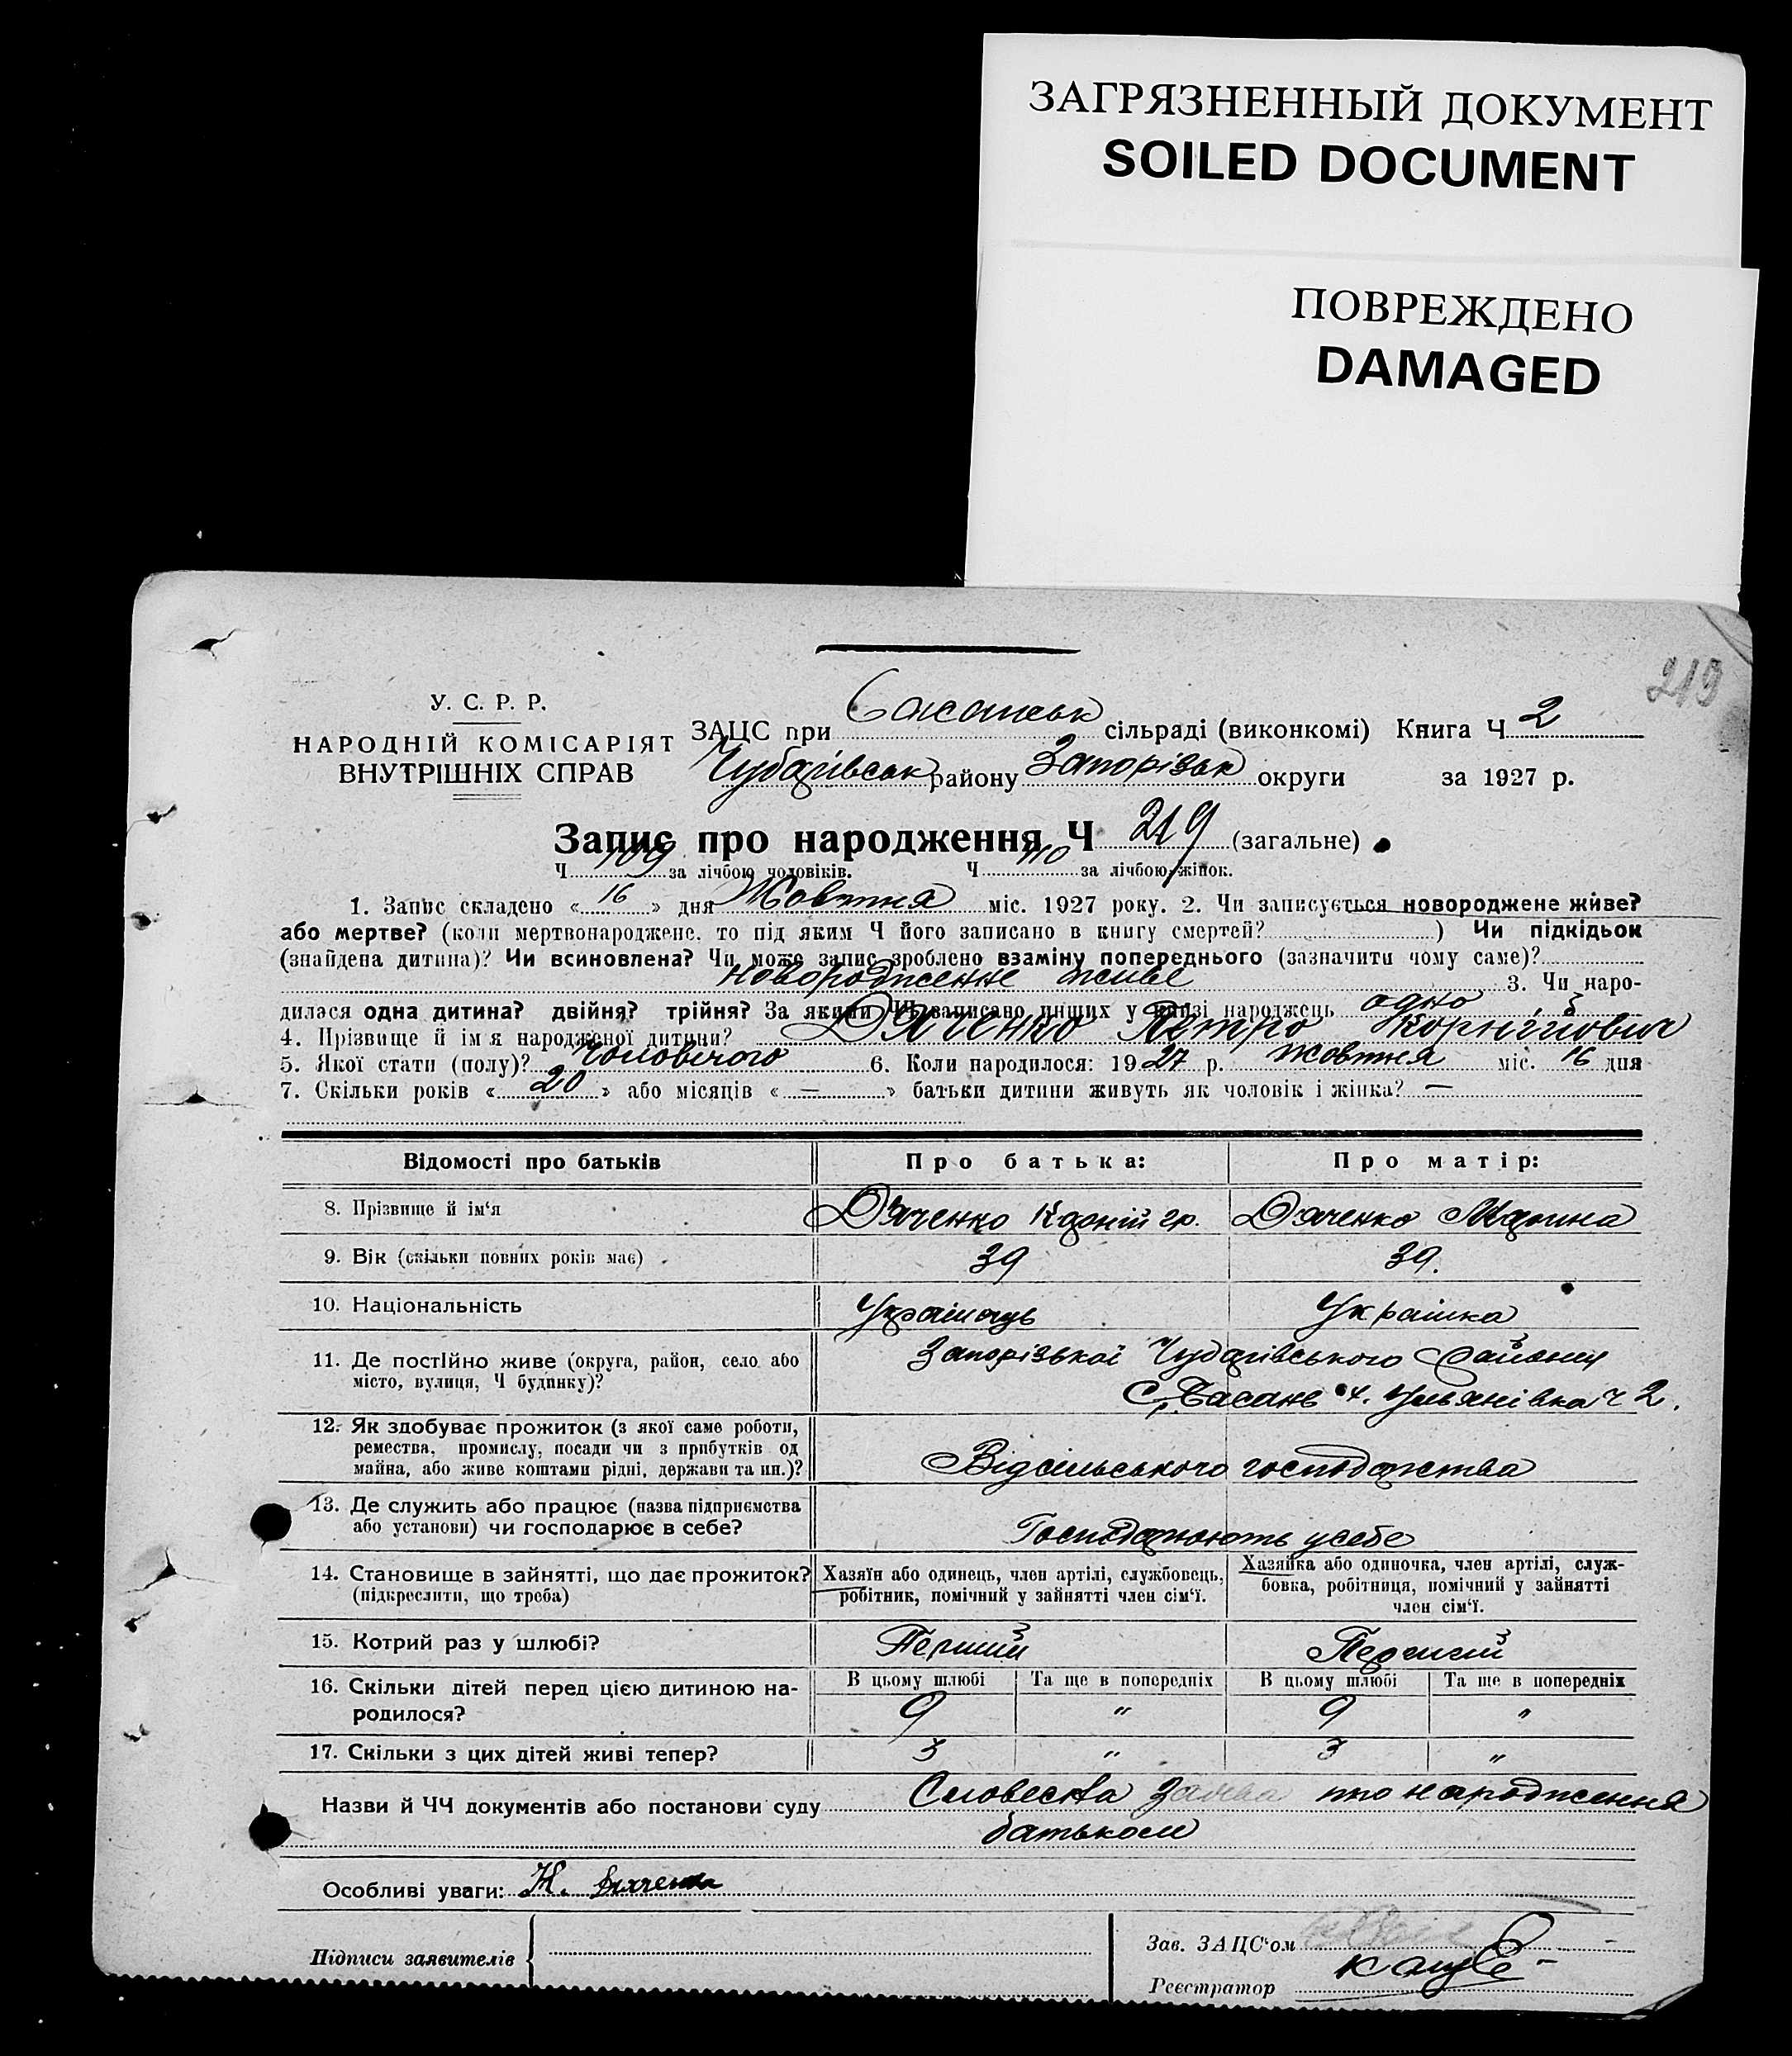 ЗАГРЯЗНЕННЫЙ ДОКУМЕНТ
SOILED DOCUMENT
ПОВРЕЖДЕНО
DAMAGED
219
У. С. Р. Р.
НАРОДНІЙ КОМІСАРІЯТ
ВНУТРІШНІХ СПРАВ
ЗАЦС при Басанськ сільраді (виконкомі) Книга Ч 2
Чубарівськ району Запорізьк округи за 1927 р.
Запис про народження Ч 219 (загальне)
Ч 109 за лічбою чоловіків. Ч 110 за лічбою жінок.
1. Запис складено «16» дня Жовтня міс. 1927 року. 2. Чи записується новороджене живе?
або мертве? (коли мертвонароджене, то під яким Ч його записано в книгу смертей? ) Чи підкідьок
(знайдена дитина)? Чи всиновлена? Чи може запис зроблено взаміну попереднього (зазначити чому саме)?
новородженне живе 3. Чи наро-
дилася одна дитина? двійня? трійня? За якими ЧЧ записано инших у книзі народжень одно
4. Прізвище й ім'я народженої дитини? Дяченко Петро Корнійович
5. Якої стати (полу)? Чоловічого 6. Коли народилося: 1927 р. жовтня міс. 16 дня
7. Скільки років «20» або місяців «—» батьки дитини живуть як чоловік і жінка? —
Відомості про батьків Про батька: Про матір:
8. Прізвище й ім'я Дяченко гр. Дяченко Марина
9. Вік (скільки повних років має) 39 39.
10. Національність Українець Українка
11. Де постійно живе (округа, район, село або
місто, вулиця, Ч будинку)?
Запорізької Чубарівського району
С. Басань Ульянівка ч 2.
12. Як здобуває прожиток (з якої саме роботи,
ремества, промислу, посади чи з прибутків од
майна, або живе коштами рідні, держави та ин.)?
Відсільського господарства
13. Де служить або працює (назва підприємства
або установи) чи господарює в себе?
Господарюють усебе
14. Становище в зайнятті, що дає прожиток?
(підкреслити, що треба)
Хазяїн або одинець, член артілі, службовець,
робітник, помічний у зайнятті член сім'ї.
Хазяйка або одиночка, член артілі, служ-
бовка, робітниця, помічний у зайнятті
член сім'ї.
15. Котрий раз у шлюбі? Перший Перший
16. Скільки дітей перед цією дитиною на-
родилося?
В цьому шлюбі Та ще в попередніх В цьому шлюбі Та ще в попередніх
9 " 9 "
17. Скільки з цих дітей живі тепер? 3 " 3 "
Назви й ЧЧ документів або постанови суду Словесна Заява про народження
батьком
Особливі уваги: К. Дяченко
Підписи заявителів
Зав. ЗАЦС'ом
Реєстратор